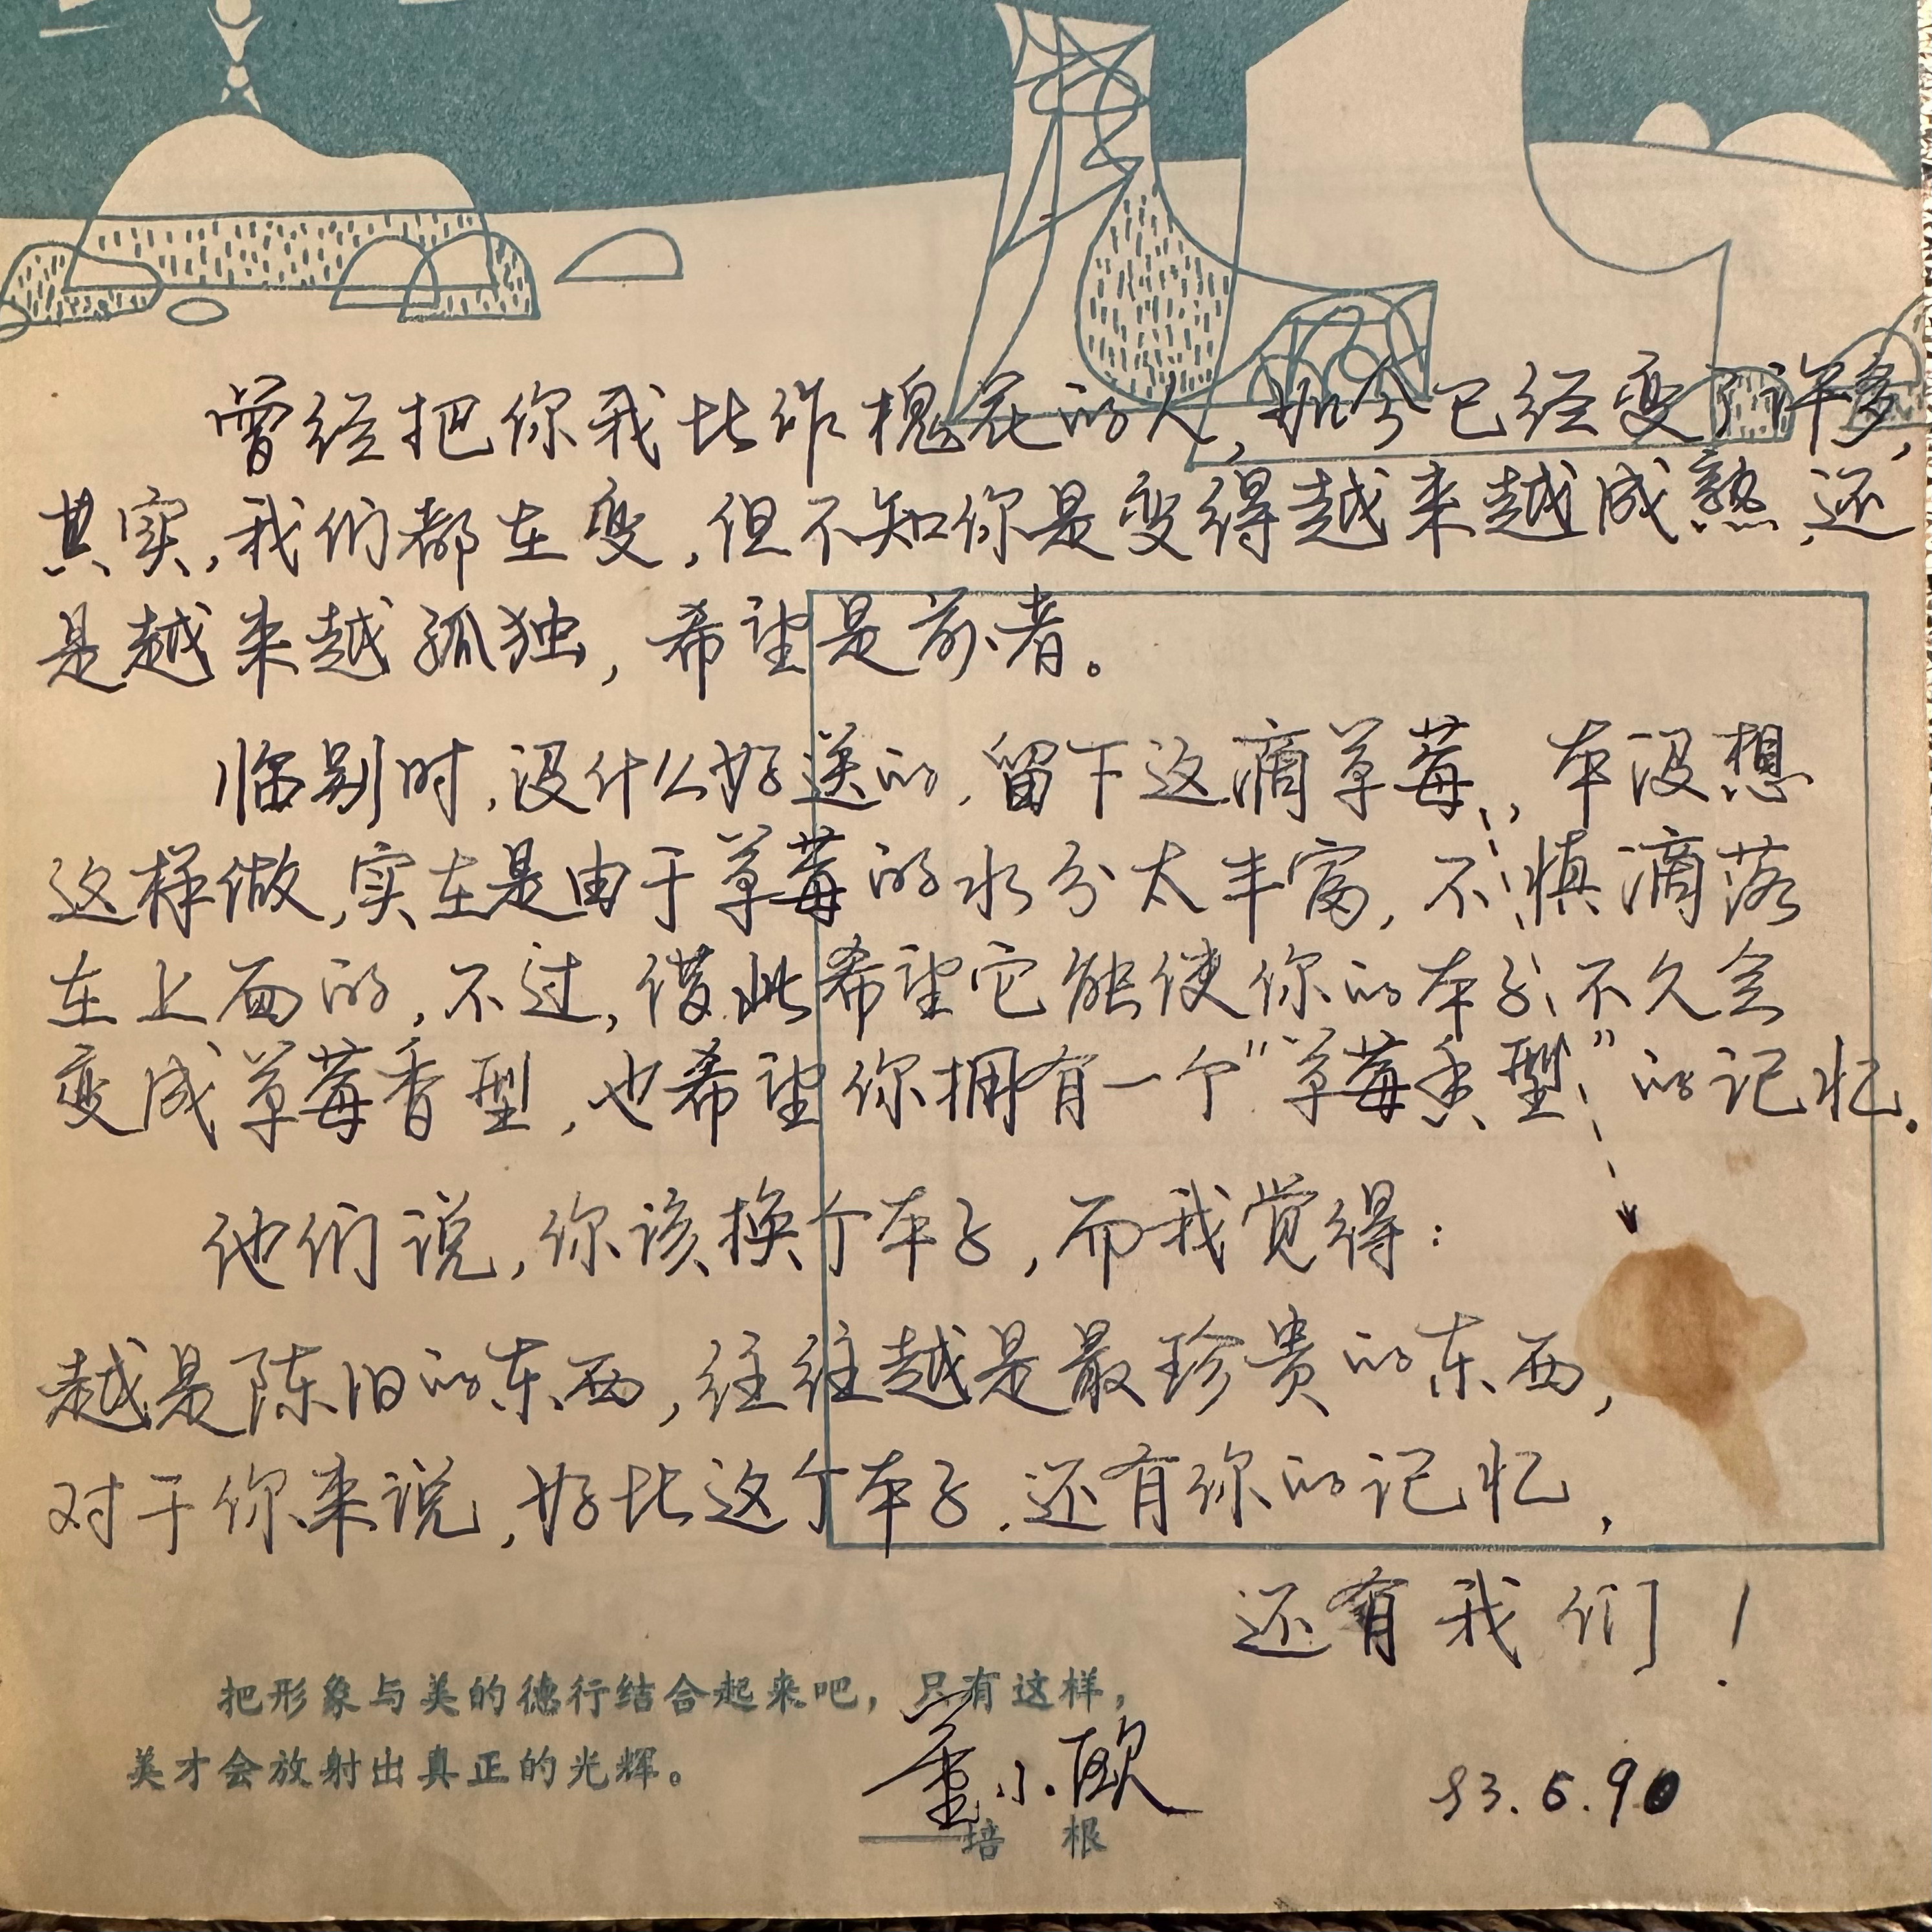 曾经把你我比作槐花的人,如今已经变了许多,
其实,我们都在变,但不知你是变得越来越成熟,还
是越来越孤独,希望是前者。
临别时,没什么好送的,留下这滴草莓,本没想
这样做,实在是由于草莓的水分太丰富,不慎滴落
在上面的,不过,借此希望它能使你的本子不久会
变成草莓香型,也希望你拥有一个“草莓香型”的记忆.
他们说,你该换个本子,而我觉得:
越是陈旧的东西,往往越是最珍贵的东西,
对于你来说,好比这个本子.还有你的记忆,
还有我们!
把形象与美的德行结合起来吧,只有这样,
美才会放射出真正的光辉。
董小欧
——培 根
93.6.90